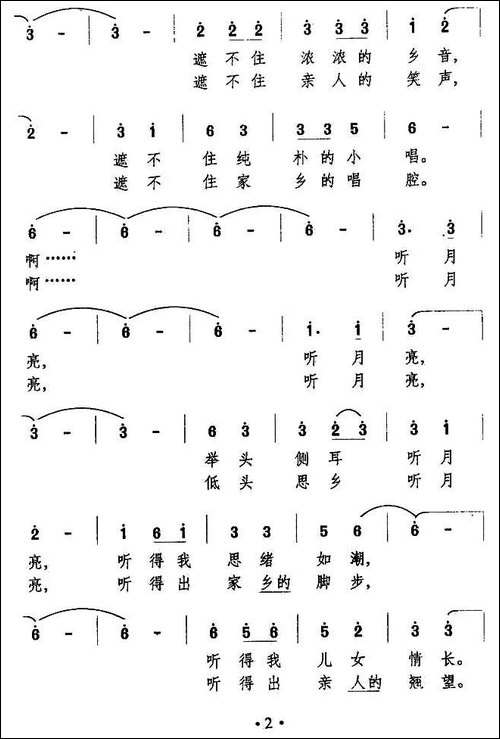 3̇ - | 3̇ - | 2̇ 2̇ 2̇ | 3̇ 3̇ 3̇ | 1̇ 2̇
遮不住 浓浓的 乡音,
遮不住 亲人的 笑声,
2̇ - | 3̇ 1̇ | 6 3 | 3 3 5 | 6 -
遮不 住纯 朴的小 唱。
遮不 住家 乡的唱 腔。
6̇ - | 6̇ - | 6̇ - | 6̇ - | 3̇· 3̇
啊…… 听月
啊…… 听月
6̇ - | 6̇ - | 6̇ - | 1̇· 1̇ | 3̇ -
亮, 听月 亮,
亮, 听月 亮,
3̇ - | 3̇ - | 6 3 | 3 2̇ 3̇ | 3̇ 1̇
举头 侧耳 听月
低头 思乡 听月
2̇ - | 1̇ 6 1̇ | 3 3 | 5 6 | 6 -
亮, 听得我 思绪 如潮,
亮, 听得出 家乡的 脚步,
6 - | 6 - | 6̇ 5̇ 6̇ | 5̇ 2̇ | 3̇ 3̇
听得我 儿女 情长。
听得出 亲人的 翘望。
·2·